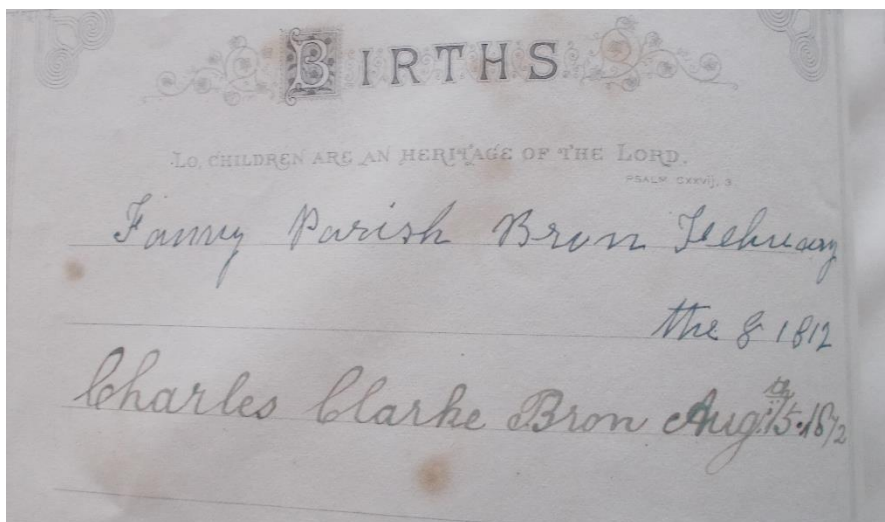 BIRTHS
LO, CHILDREN ARE AN HERITAGE OF THE LORD.
PSALM CXXVIJ, 3.
Fanny Parish Bron February
the 8 1812
Charles Clarke Bron Aug. 15. 1872